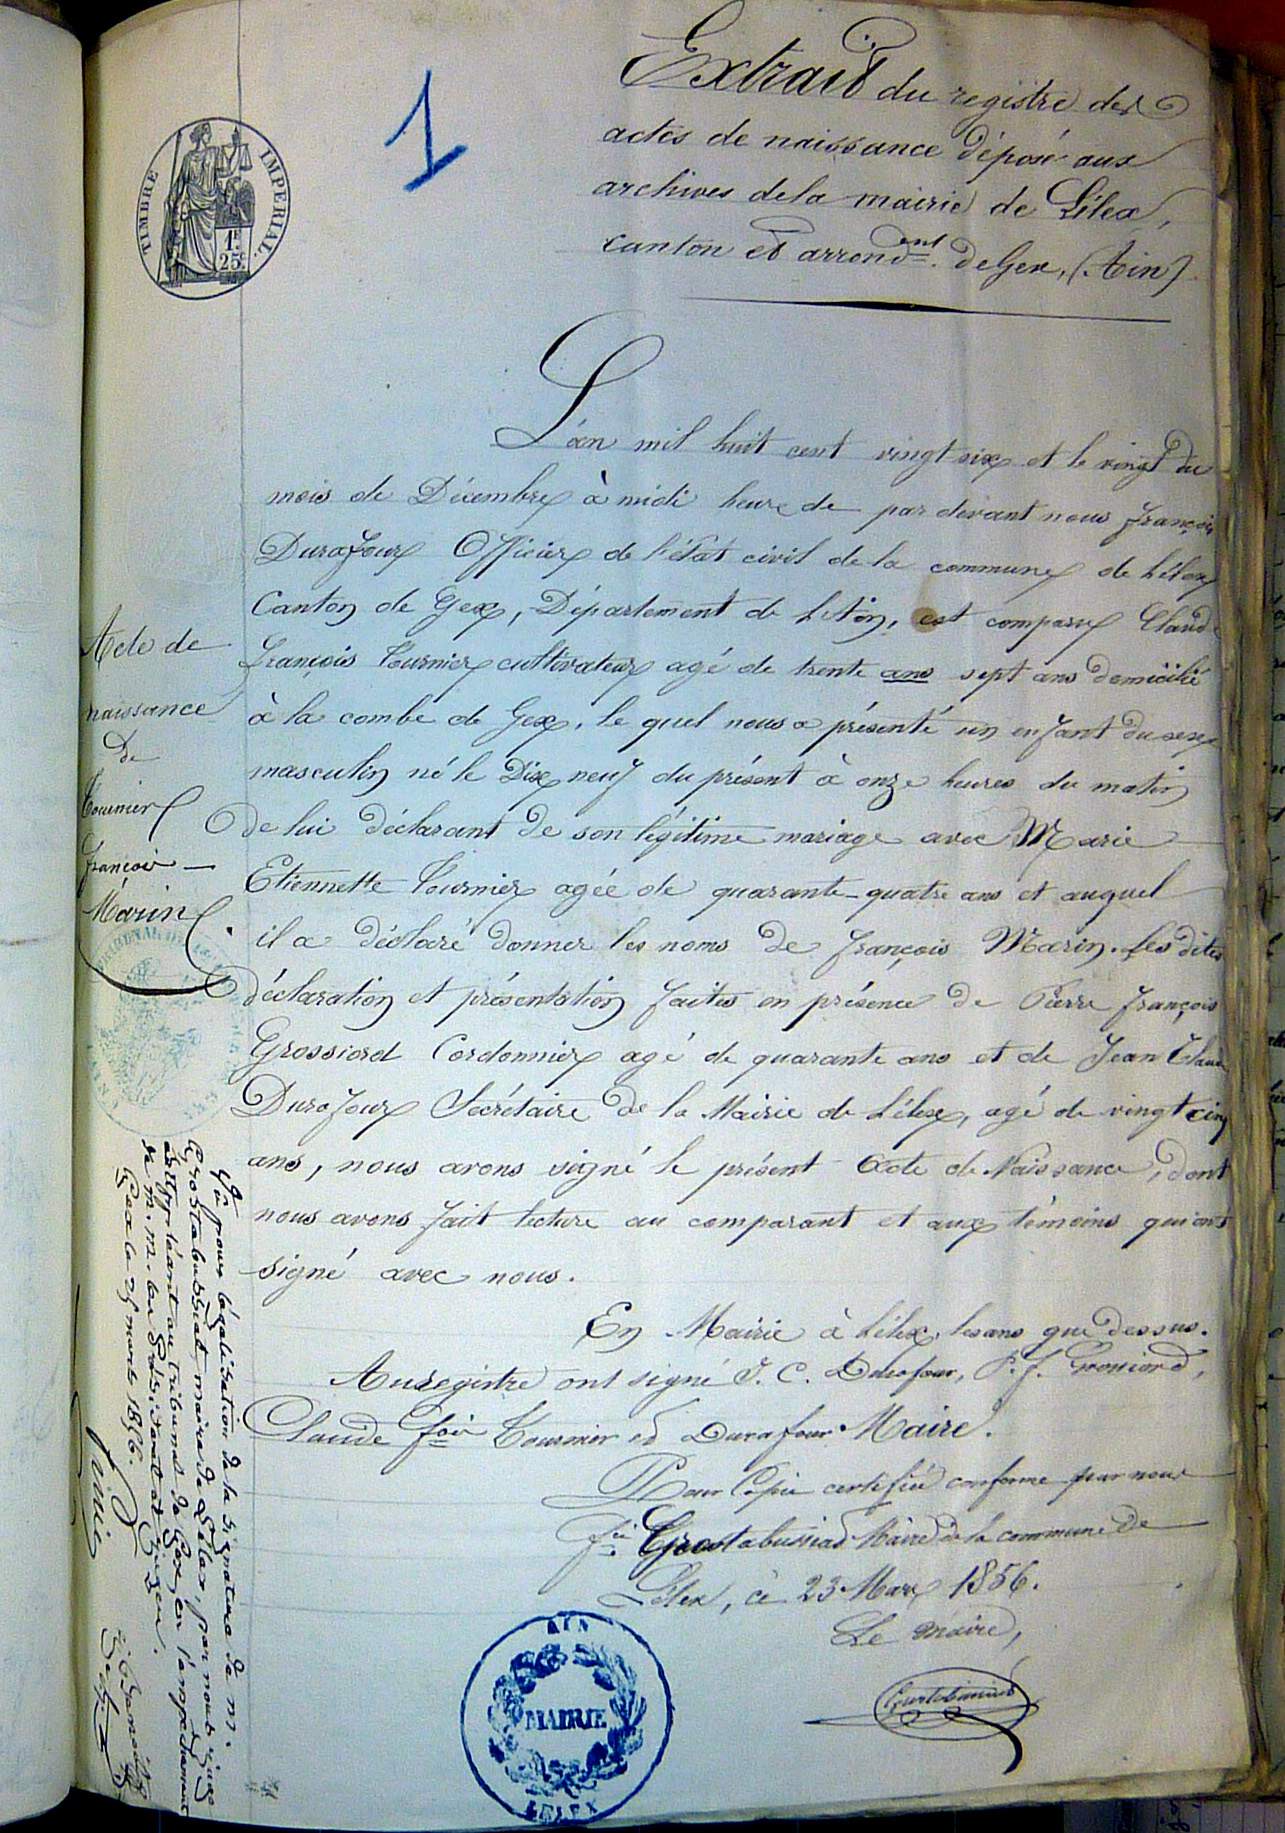 1
TIMBRE IMPERIAL.
1F.
25c
Extrait du registre des
actes de naissance déposé aux
archives dela mairie de Lélex,
canton et arrondent. de Gex, (Ain)
L'an mil huit cent vingt six et le vingt du
mois de Décembre à midi heure de par devant nous françois
Durafour Officier de l'état civil de la commune de Lélex
Canton de Gex, Département de L'Ain, est comparu Claude
françois Tournier cultivateur agé de trente ans sept ans domicilié
à la combe de Gex, le quel nous a présenté un enfant du sexe
masculin né le Dix neuf du présent à onze heures du matin
de lui déclarant de son légitime mariage avec Marie
Etiennette Tournier agée de quarante-quatre ans et auquel
il a déclaré donner les noms de françois Marin. Les dites
déclaration et présentation faites en présence de Pierre françois
Grossiord Cordonnier agé de quarante ans et de Jean Claude
Durafour Secrétaire de la Mairie de Lélex, agé de vingt cinq
ans, nous avons signé le présent acte de Naissance, dont
nous avons fait lecture au comparant et aux témoins qui ont
signé avec nous.
En Mairie à Lélex, les ans que dessus.
Au registre ont signé J. C. Durafour, P. f. Grossiord,
Claude fois Tournier et Durafour Maire.
Pour Copie certifiée conforme par nous
fois Grostabussiat Maire de la commune de
Lélex, ce 23 Mars 1856.
Le maire,
Grostabussiat
Acte de
naissance
de
Tournier
françois
Marin
Vu pour légalisation de la signature de M.
Grostabussiat maire de Lélex, par nous juge
au tribunal de Gex, en l'empêchement
de M. M. les Président et
Gex le 25 mars 1856.
AIN
MAIRIE
LELEX